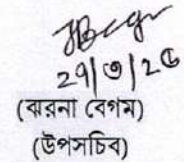 ২৭|৩|২৫
(ঝরনা বেগম)
(উপসচিব)